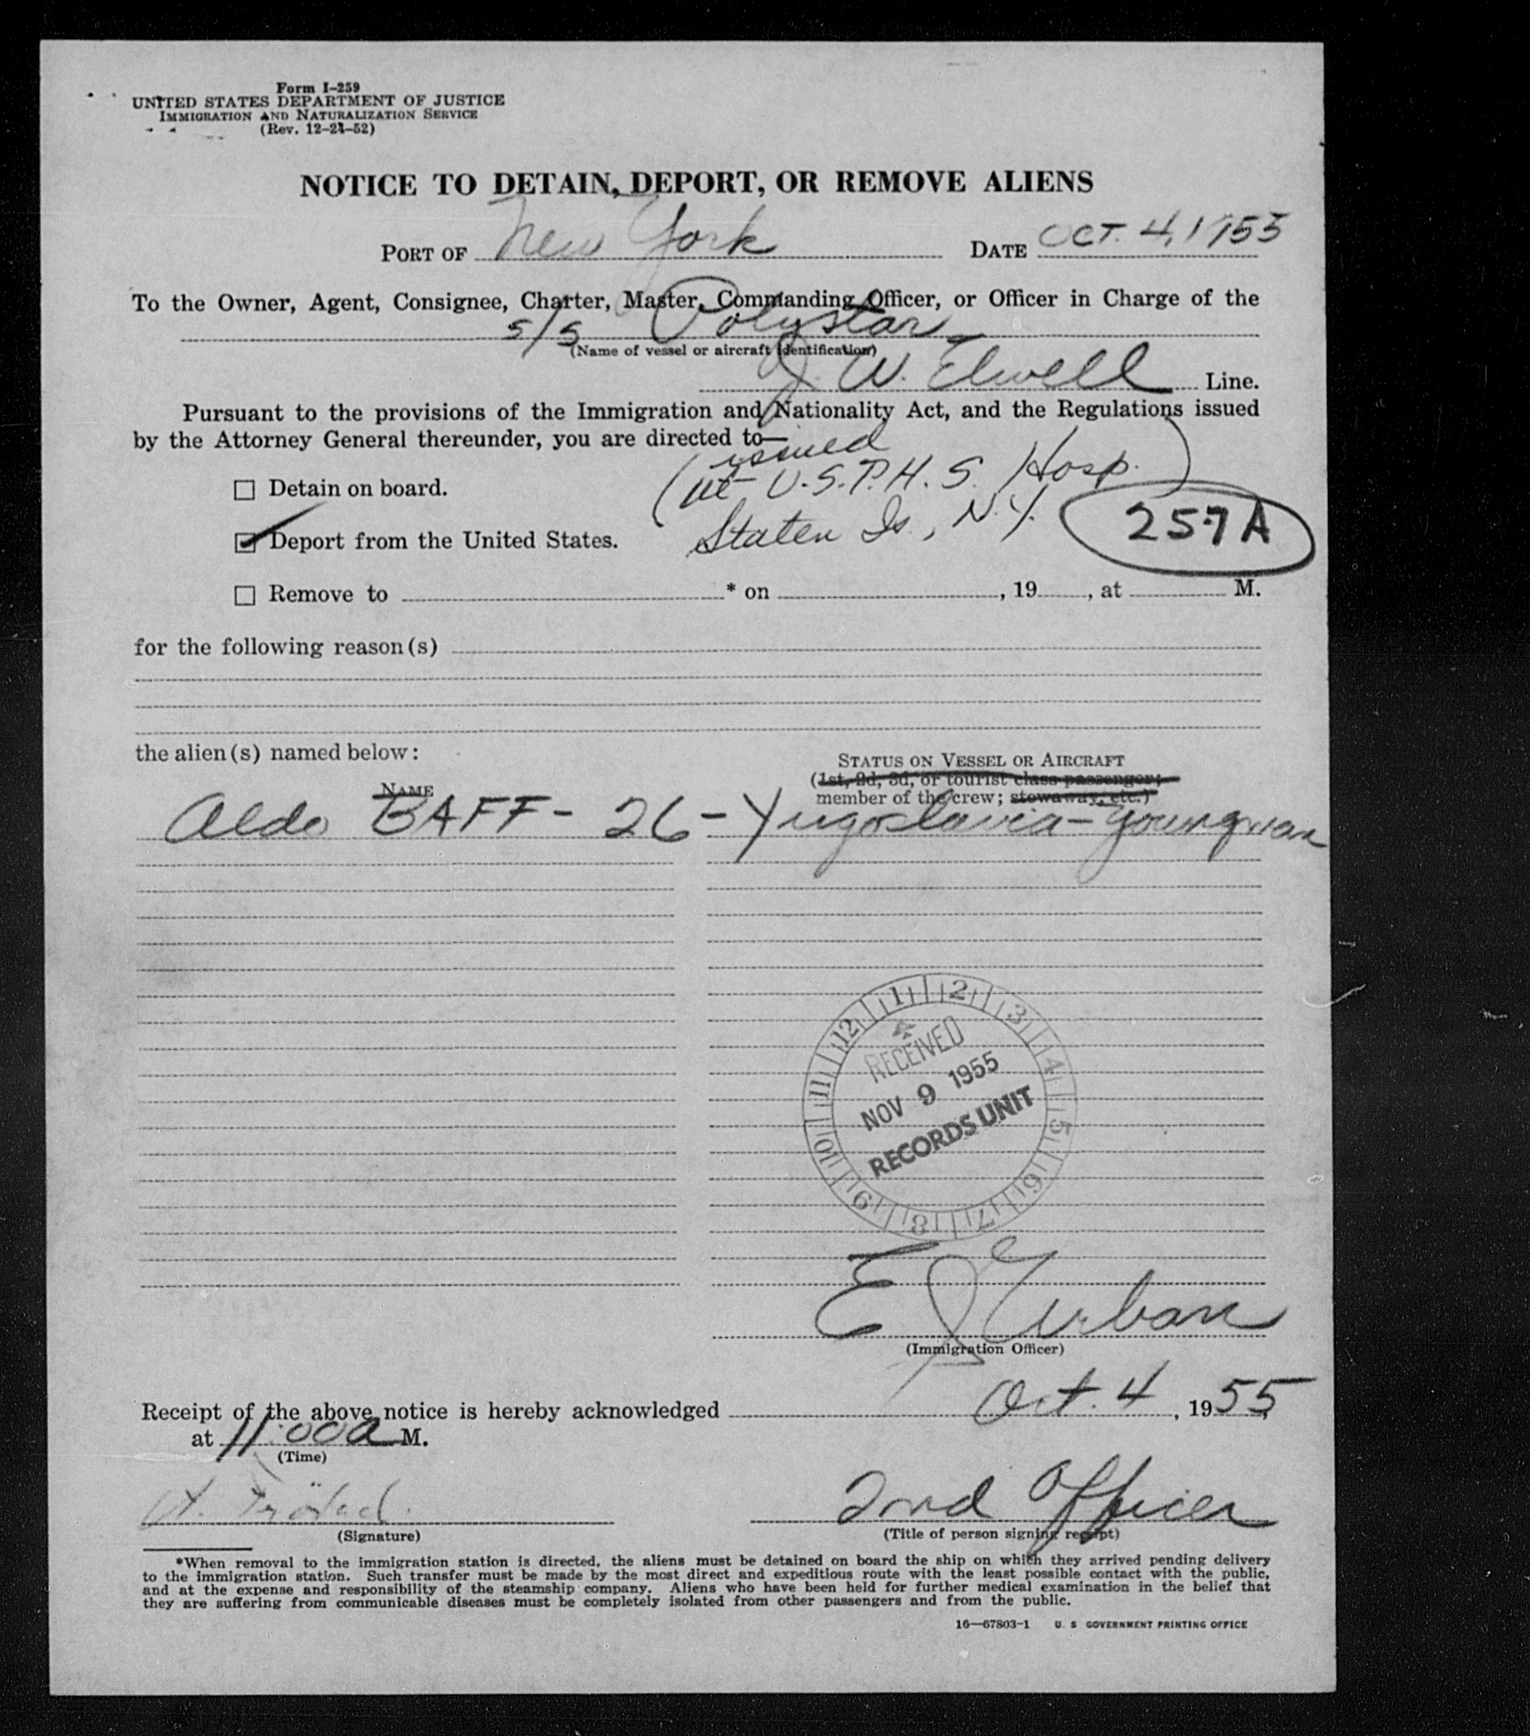 Form I-259
UNITED STATES DEPARTMENT OF JUSTICE
IMMIGRATION AND NATURALIZATION SERVICE
(Rev. 12-24-52)
NOTICE TO DETAIN, DEPORT, OR REMOVE ALIENS
PORT OF New York DATE OCT. 4, 1955
To the Owner, Agent, Consignee, Charter, Master, Commanding Officer, or Officer in Charge of the
s/s Polystar
(Name of vessel or aircraft identification)
J. W. Elwell Line.
Pursuant to the provisions of the Immigration and Nationality Act, and the Regulations issued
by the Attorney General thereunder, you are directed to—
issued
Detain on board. (at U.S.P.H.S. Hosp.)
Deport from the United States. Staten Is., N.Y. 257A
Remove to * on , 19 , at M.
for the following reason(s)
the alien(s) named below:
STATUS ON VESSEL OR AIRCRAFT
(1st, 2d, 3d, or tourist class passenger;
NAME member of the crew; stowaway, etc.)
Aldo BAFF - 26 - Yugoslavia - youngman
1 2 3 4 5 6 7 8 9 10 11 12
RECEIVED
NOV 9 1955
RECORDS UNIT
E J Urban
(Immigration Officer)
Receipt of the above notice is hereby acknowledged Oct. 4, 1955
at 11:00a M.
(Time)
2nd Officer
(Signature) (Title of person signing receipt)
*When removal to the immigration station is directed, the aliens must be detained on board the ship on which they arrived pending delivery
to the immigration station. Such transfer must be made by the most direct and expeditious route with the least possible contact with the public,
and at the expense and responsibility of the steamship company. Aliens who have been held for further medical examination in the belief that
they are suffering from communicable diseases must be completely isolated from other passengers and from the public.
16—67803-1 U. S GOVERNMENT PRINTING OFFICE